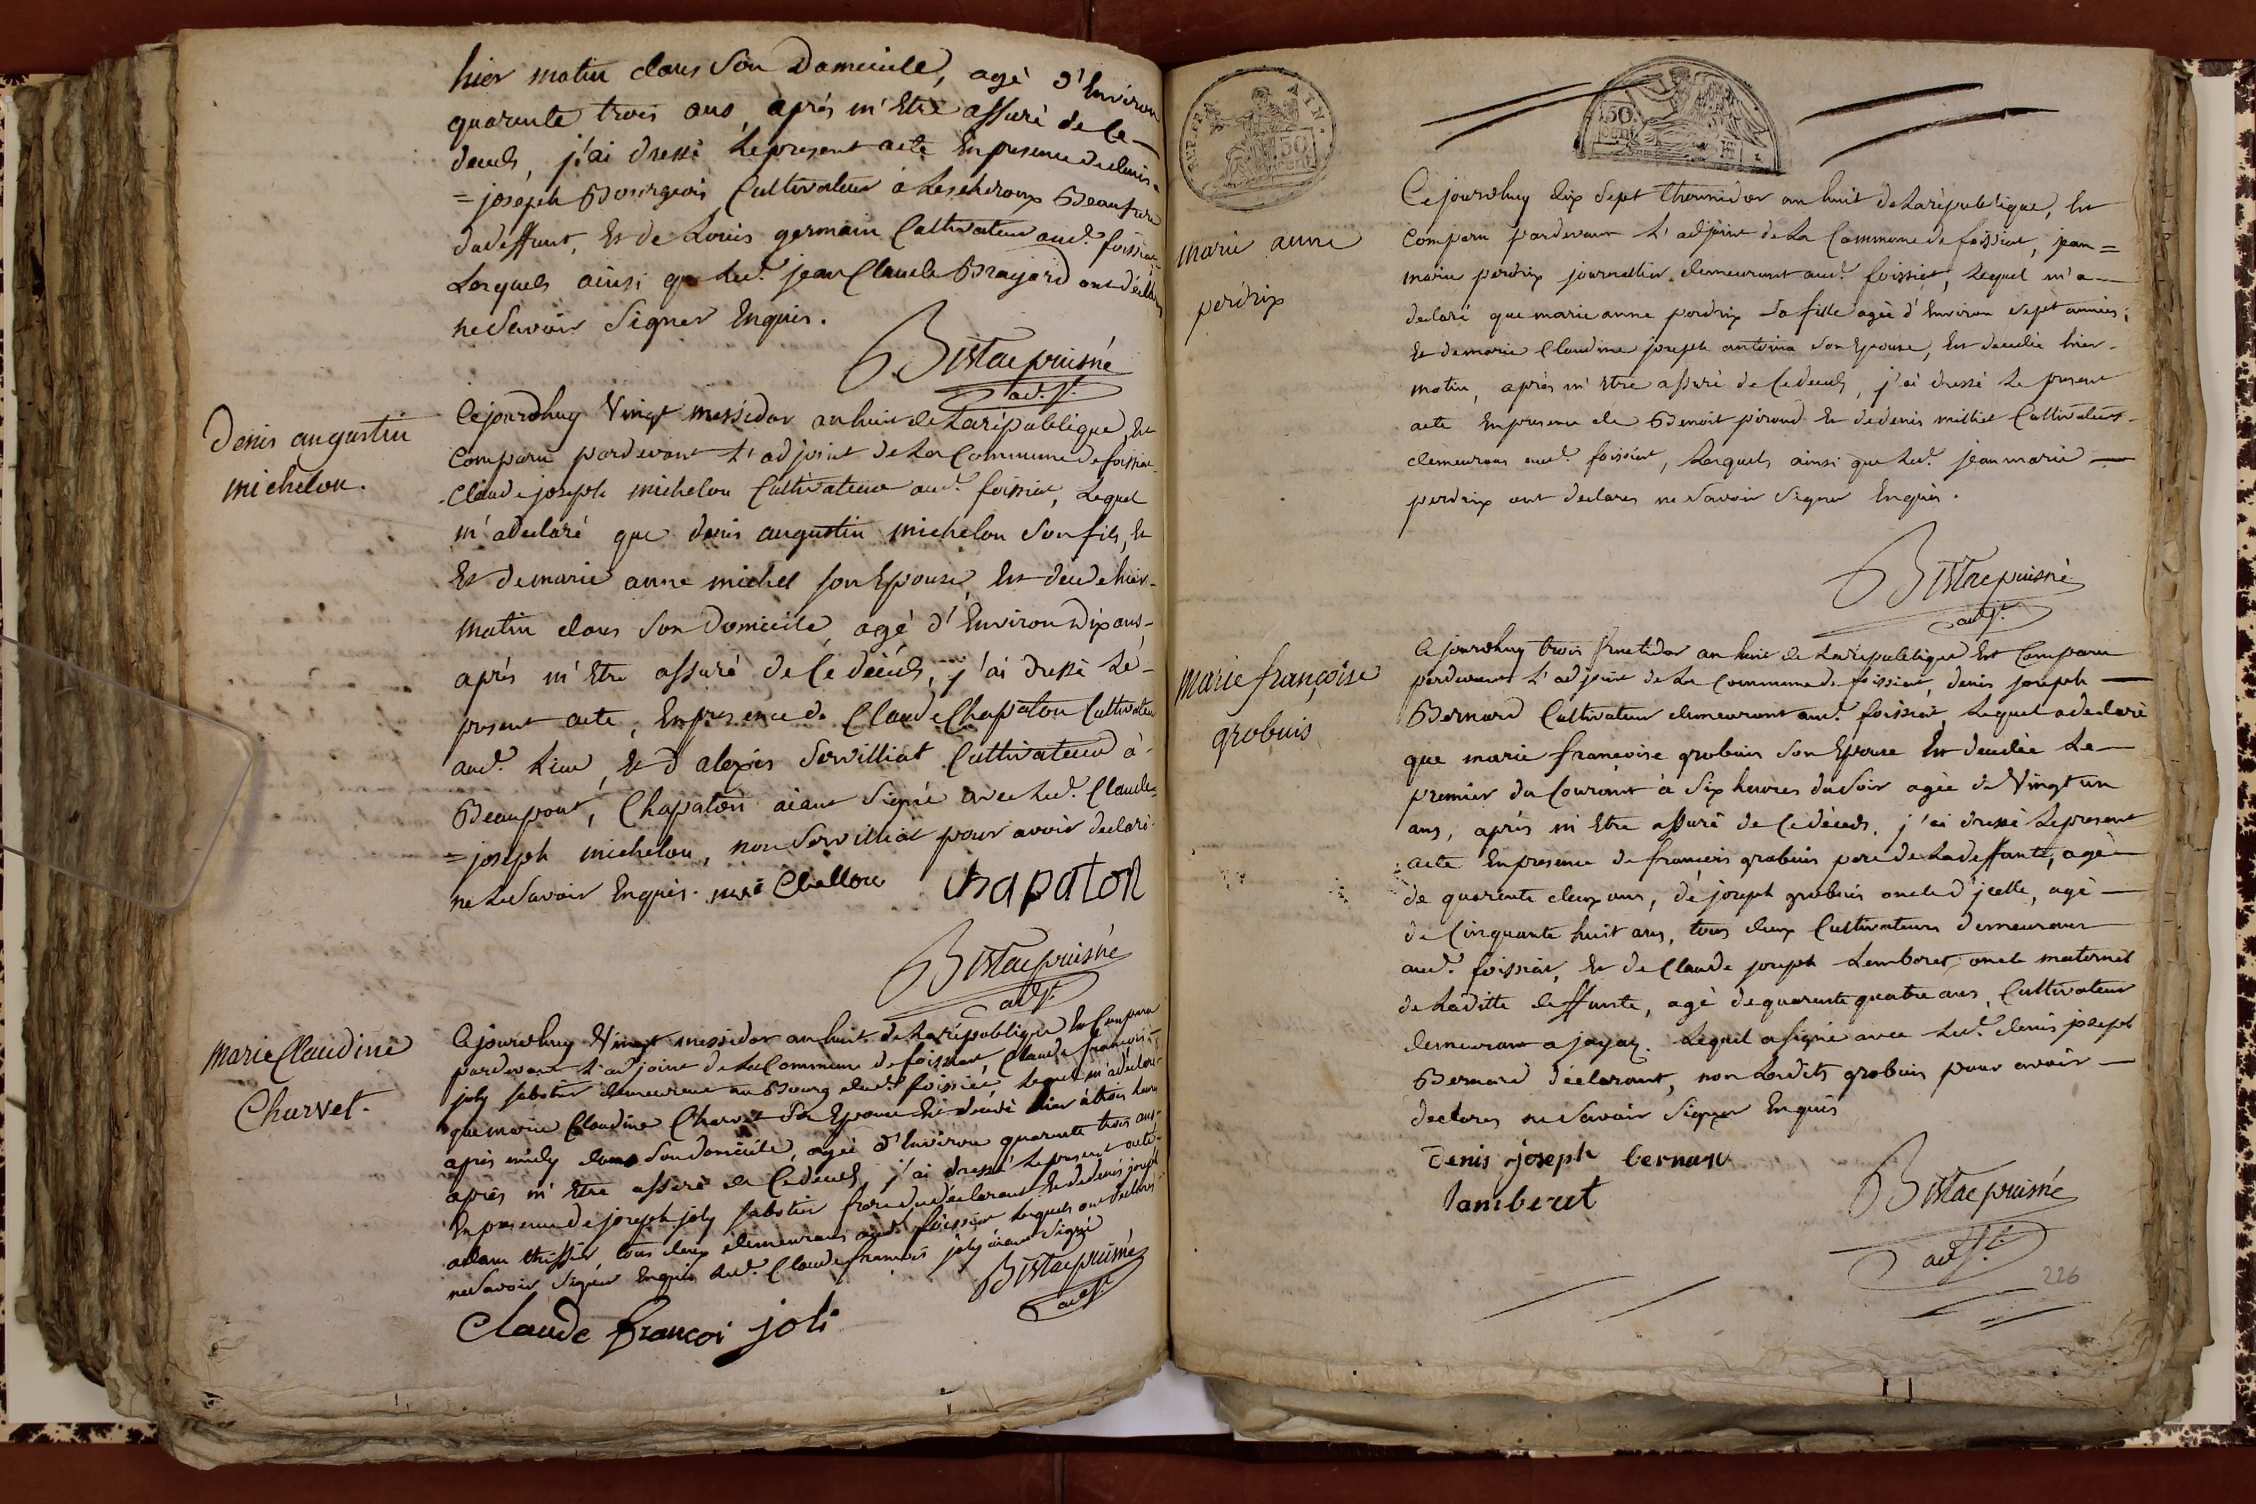 hier matin dans Son Domicile, agé d'Environ
quarente trois ans, aprés m'Etre assuré de Ce
deces, j'ai dressé Lepresent acte Enpresence dedenis
=joseph Bourgeois Cultivateur à Lescheroux Beaufrere
dudeffunt, Et de Louis germain Cultivateur aud.t foissiat
Lesquels ainsi que Led.t jean Claude Brayard ont déclarés
ne Savoir Signer Enquis.
Bistac puisné
adj.t
Denis augustin
michelon.
Cejourdhuy Vingt messidor an huit de Larépublique Est
Comparu pardevant L'adjoint de La Commune de foissiat
Claude joseph michelon Cultivateur aud.t foissiat, Lequel
m'adeclaré que denis augustin michelon Son fils, Et
Et demarie anne michel son Epouse, Est décédé hier
matin dans Son Domicile, agé d'Environ Dix ans,
aprés m'Etre assuré de Ce décés, j'ai dressé Le
present acte, Enpresence de Claude Chapaton Cultivateur
aud.t Lieu, Et d'alexis Servilliat Cultivateur à
Beaupont, Chapaton aiant Signé avec Led.t Claude
=joseph michelon, non Servilliat pour avoir declaré
ne Le Savoir Enquis. Chellon chapaton
Bistac puisné
adj.t
Marie Claudine
Charvet.
Cejourdhuy Vingt messidor an huit de Larépublique Est Comparu
pardevant L'adjoint de La Commune de foissiat, Claude françois
joly sabotier demeurant au Bourg dud.t foissiat Lequel m'adeclaré
que marie Claudine Charvet Son Epouse Est décédé hier à trois heures
aprés midy dans Son domicile, agée d'Environ quarente trois ans
aprés m'Etre assuré de Ce deces, j'ai dressé Lepresent acte
Enpresence de joseph joly sabotier frere du declarant Et dedenis joseph
adam thissier tous deux demeurants aud.t foissiat Lesquels ont declarés
ne Savoir Signer Enquis Led.t Claude francois joly aiant Signé
Bistac puisné
adj.t
Claude françoi joli
50
50
cent
marie anne
perdrix
Cejourdhuy dix Sept thermidor an huit de Larépublique, Est
Comparu pardevant L'adjoint de La Commune de foissiat, jean=
marie perdrix journallier demeurant aud.t foissiat, Lequel m'a
declaré que marie anne perdrix Sa fille agée d'Environ Sept années,
Et demarie Claudine joseph antoina Son Epouse, Est decedée hier
matin, aprés m'Etre assuré de Cedeces, j'ai dressé Le present
acte Enpresence de Benoit pirond Et dedenis milliet Cultivateurs
demeurans aud.t foissiat, Lesquels ainsi que Led.t jean marie
perdrix ont declarés ne Savoir Signer Enquis.
Bistac puisné
adj.t
marie françoise
grobuis
Cejourdhuy trois fructidor an huit de Larépublique Est Comparu
pardevant L'adjoint de La Commune de foissiat, denis joseph
Bernard Cultivateur demeurant aud.t foissiat, Lequel adeclaré
que marie francoise grobuis Son Epouse Est decedée Le
premier du Courant à Six heures du Soir agée de Vingt un
ans, aprés m'Etre assuré de Ce décés, j'ai dressé Lepresent
acte Enpresence de francois grobuis pere de Ladeffunte, agé
de quarente deux ans, de joseph grobuis oncle d'jcelle, agé
de Cinquante huit ans, tous deux Cultivateurs demeurans
aud.t foissiat, Et de Claude joseph Lamberet oncle maternel
de Laditte deffunte, agé dequarente quatre ans, Cultivateur
demeurant a jayaz. Lequel asigné avec Led.t denis joseph
Bernard déclarant, non Lesdits grobuis pour avoir
declarés ne Savoir Signer Enquis
Denis joseph bernard
lamberet
Bistac puisné
adj.t
226